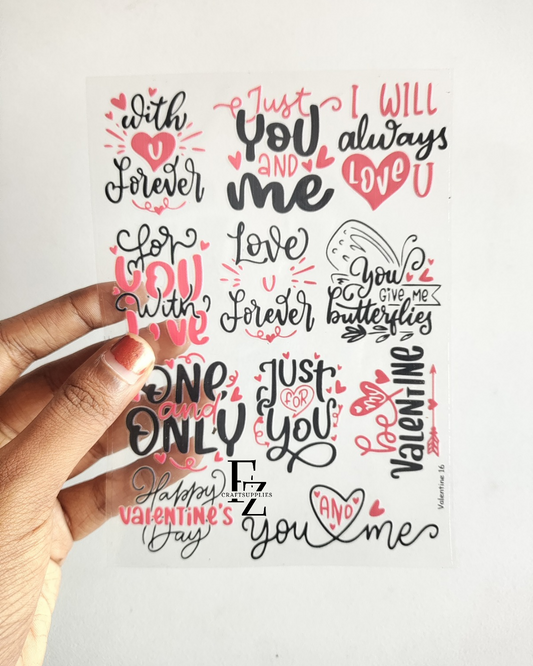 with
U
Forever
Just
YOU
AND
me
I WILL
always
LOVE U
for
YOU
With
Love
Love
U
Forever
You
GIVE ME
butterflies
ONE
and
ONLY
Just
FOR
You
be
My
VALENTINE
Happy
Valentine's
Day
FZ
CRAFTSUPPLIES
You AND me
Valentine 16